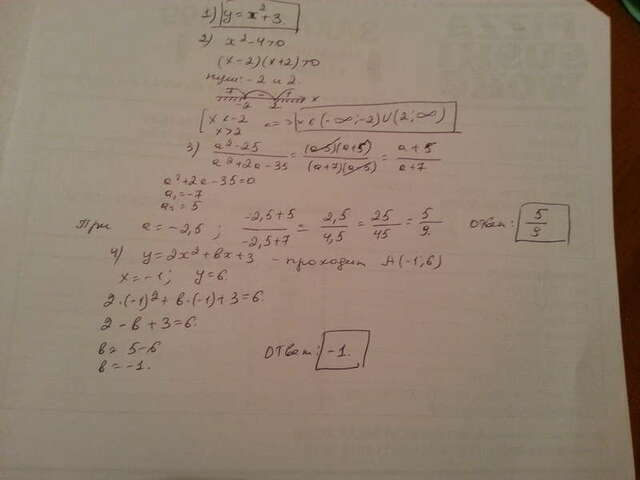 1) y = x² + 3
2) x² - 4 > 0
(x - 2)(x + 2) > 0
нули: -2 и 2.
+ - + x
-2 2
[ x < -2
x > 2 <=> x ∈ (-∞; -2) ∪ (2; ∞)
3) (a² - 25)/(a² + 2a - 35) = ((a-5)(a+5))/((a+7)(a-5)) = (a + 5)/(a + 7)
a² + 2a - 35 = 0
a₁ = -7
a₂ = 5
При a = -2,5 ; (-2,5 + 5)/(-2,5 + 7) = 2,5/4,5 = 25/45 = 5/9. ответ: 5/9
4) y = 2x² + bx + 3 - проходит A (-1; 6)
x = -1; y = 6.
2·(-1)² + b·(-1) + 3 = 6.
2 - b + 3 = 6.
b = 5 - 6
b = -1. ответ: -1.